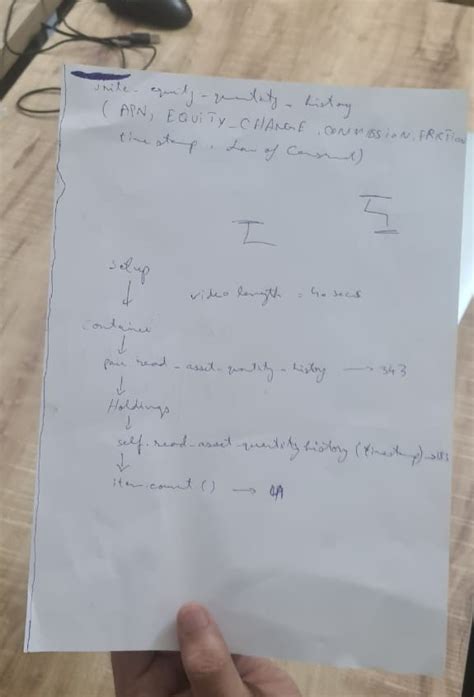 write_equity_quantity_history
( APN, EQUITY_CHANGE, COMMISSION, FRICTION
timestamp,
setup
video length = 40 secs
container
read_asset_quantity_history → 343
Holdings
self.read_asset_quantity_history (timestamp) →
count ( ) →